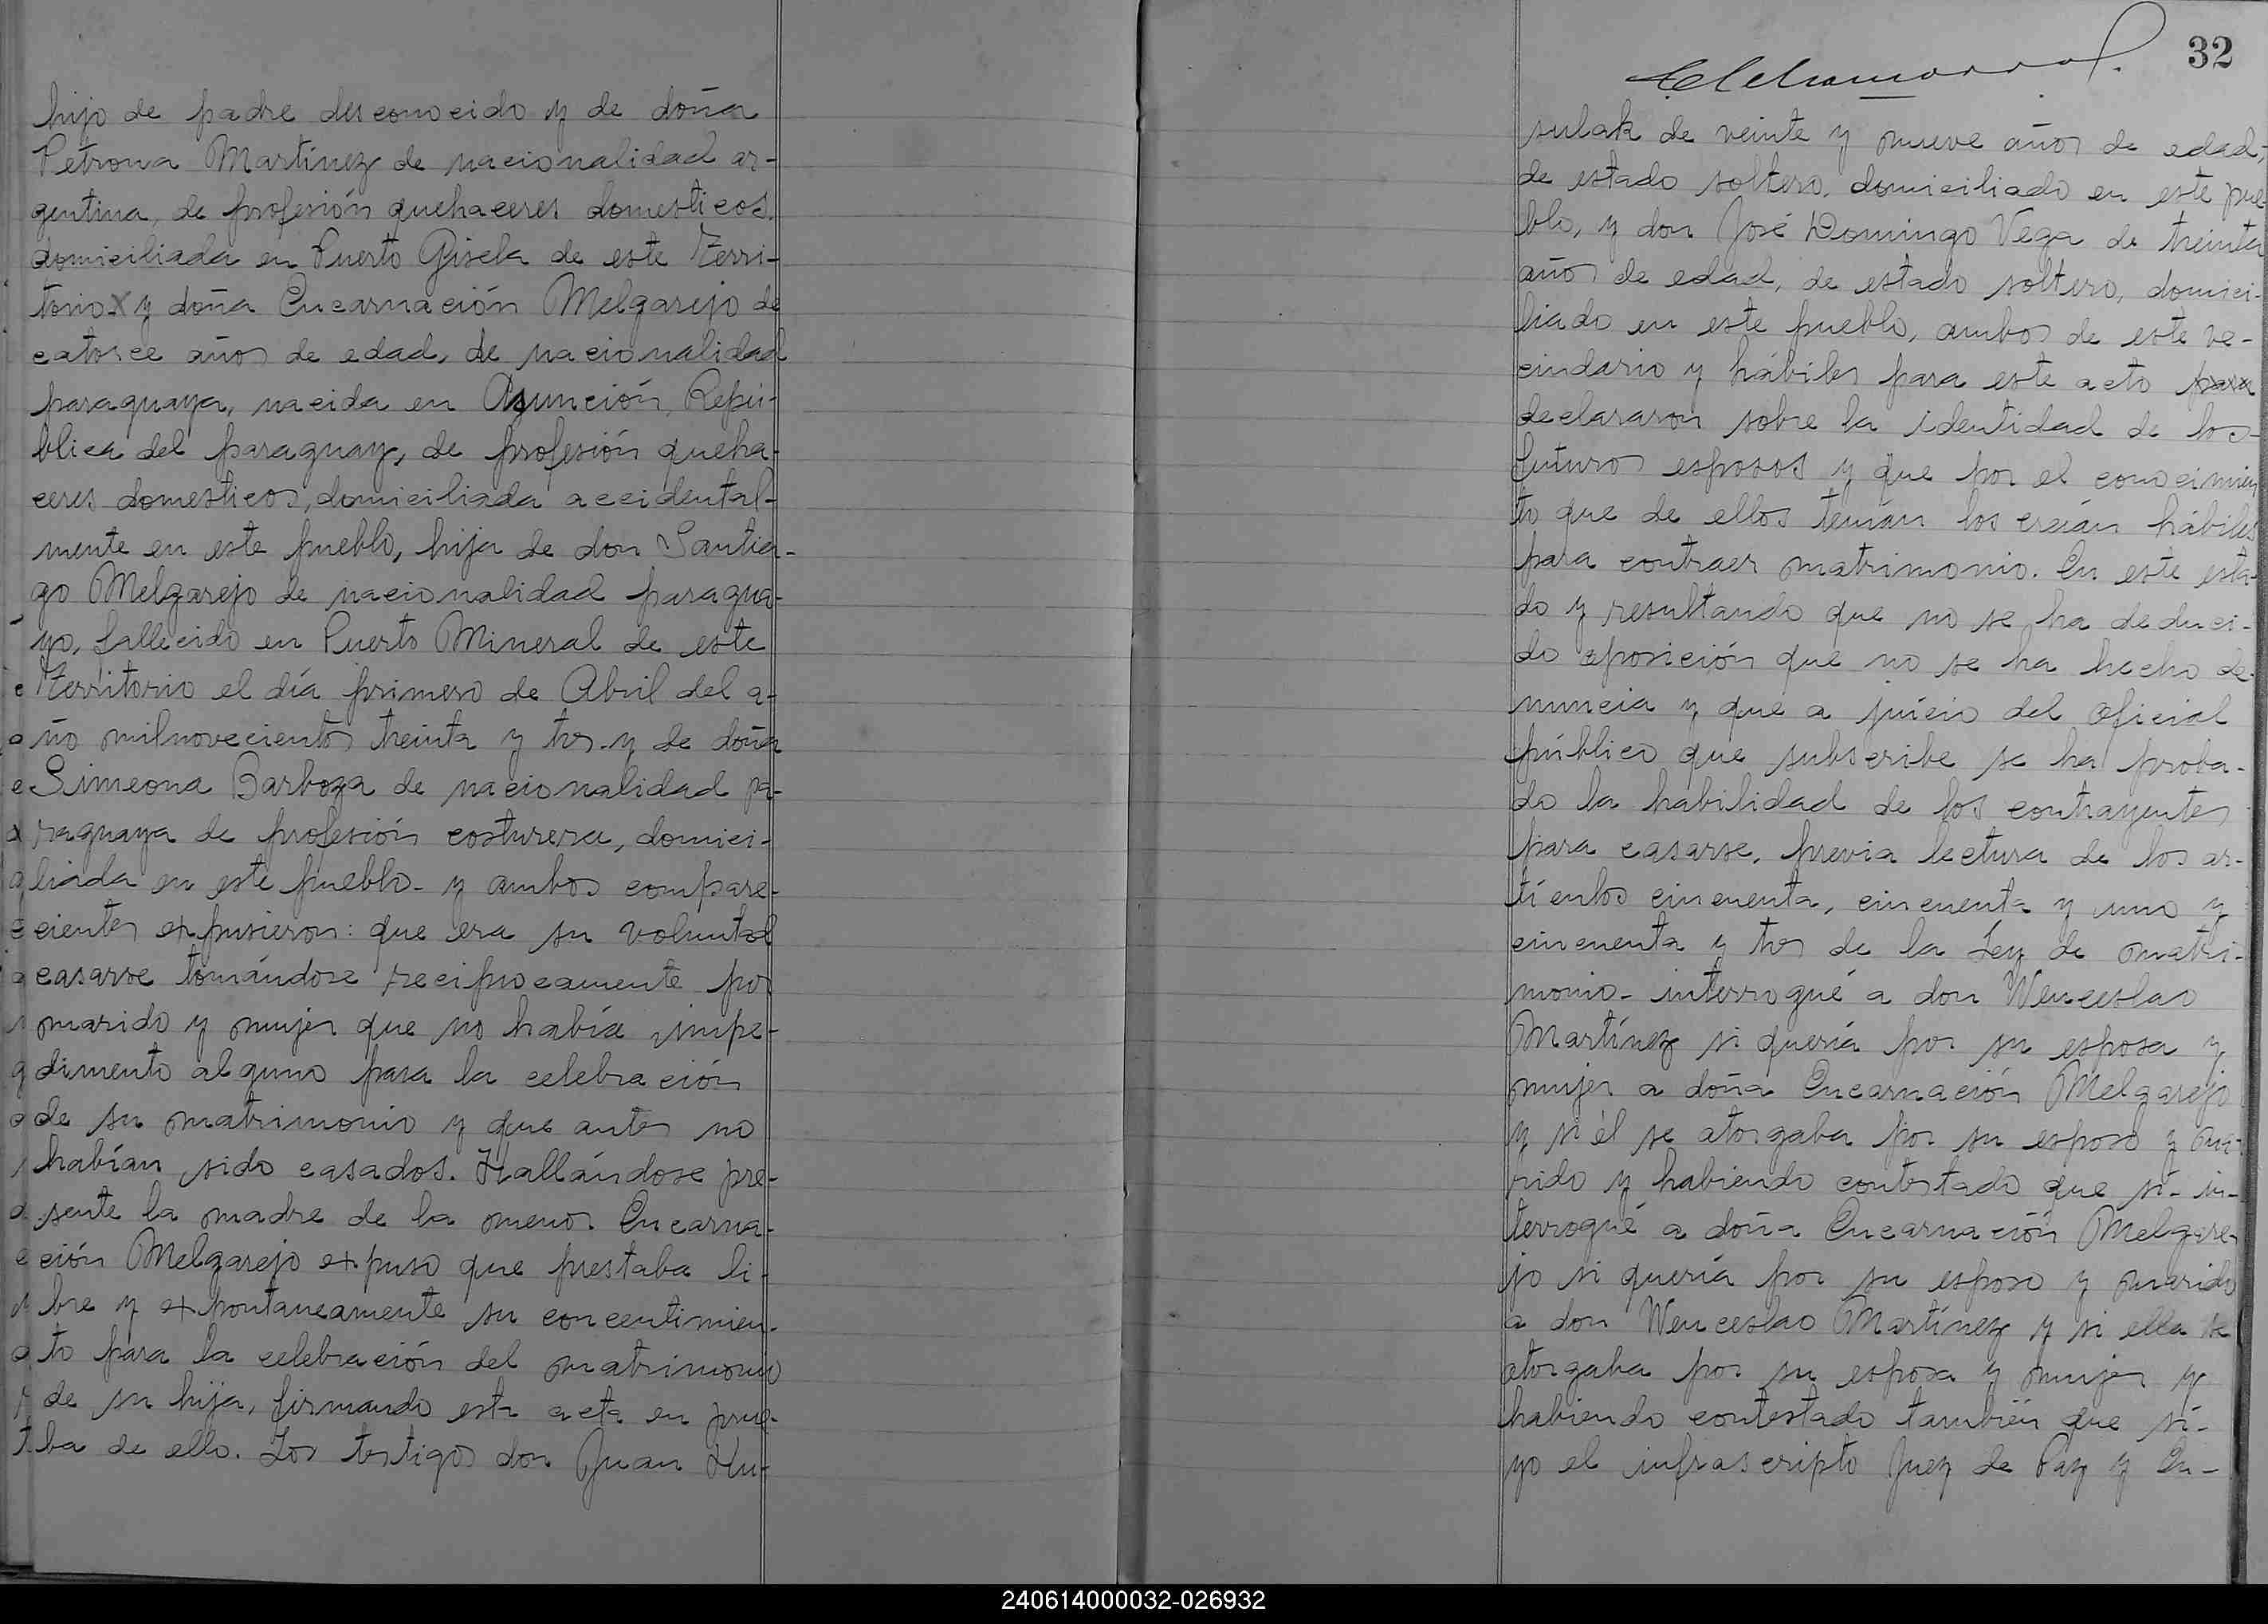 hijo de padre desconocido y de doña
Petrona Martínez de nacionalidad ar-
gentina, de profesión quehaceres domesticos,
domiciliada en Puerto Gisela de este Terri-
torio x y doña Encarnación Melgarejo de
catorce años de edad, de nacionalidad
paraguaya, nacida en Asunción, Repú-
blica del paraguay, de profesión queha-
ceres domesticos, domiciliada accidental-
mente en este pueblo, hija de don Santia-
go Melgarejo de nacionalidad paragua-
yo, fallecido en Puerto Mineral de este
Territorio el día primero de Abril del a-
ño milnovecientos treinta y tres - y de doña
Simeona Barboza de nacionalidad pa-
raguaya de profesión costurera, domici-
liada en este pueblo - y ambos compare-
cientes expusieron: que era su voluntad
casarse tomándose reciprocamente por
marido y mujer que no había impe-
dimento alguno para la celebración
de su matrimonio y que antes no
habían sido casados. Hallándose pre-
sente la madre de la menor Encarna-
ción Melgarejo expuso que prestaba li-
bre y expontaneamente su concentimien-
to para la celebración del matrimonio
de su hija, firmando esta acta en prue-
ba de ello. Los testigos don Juan Hu-
32
sulak de veinte y nueve años de edad,
de estado soltero, domiciliado en este pue
blo, y don José Domingo Vega de treinta
años de edad, de estado soltero, domici-
liado en este pueblo, ambos de este ve-
cindario y hábiles para este acto para
declararon sobre la identidad de los
futuros esposos y que por el conocimien
to que de ellos tenían los creían hábiles
para contraer matrimonio. En este esta-
do y resultando que no se ha deduci-
do oposición que no se ha hecho de-
nuncia y que a juicio del oficial
público que subscribe se ha proba-
do la habilidad de los contrayentes
para casarse, previa lectura de los ar-
tículos cincuenta, cincuenta y uno y
cincuenta y tres de la Ley de matri-
monio - interrogué a don Wenceslao
Martínez si quería por su esposa y
mujer a doña Encarnación Melgarejo
y si él se otorgaba por su esposo y ma-
rido y habiendo contestado que sí - in-
terrogué a doña Encarnación Melgare-
jo si quería por su esposo y marido
a don Wenceslao Martínez y si ella se
otorgaba por su esposa y mujer y
habiendo contestado también que sí -
yo el infrascripto Juez de Paz y En-
240614000032-026932